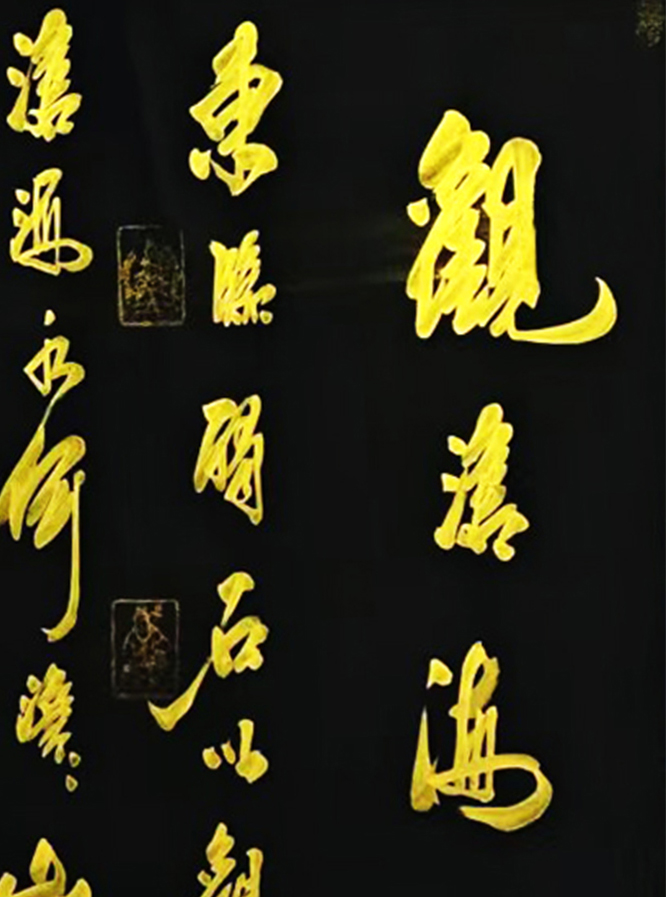 觀滄海
東臨碣石以觀
滄海水何澹〻山